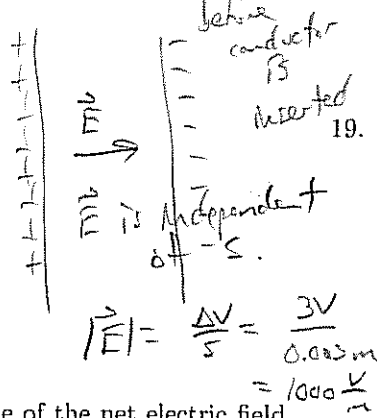 before
conductor
is
inserted
19.
+ −
E⃗
E⃗ is independent
of s.
|E⃗| = ΔV/s = 3V/0.003m
= 1000 V/m
e of the net electric field